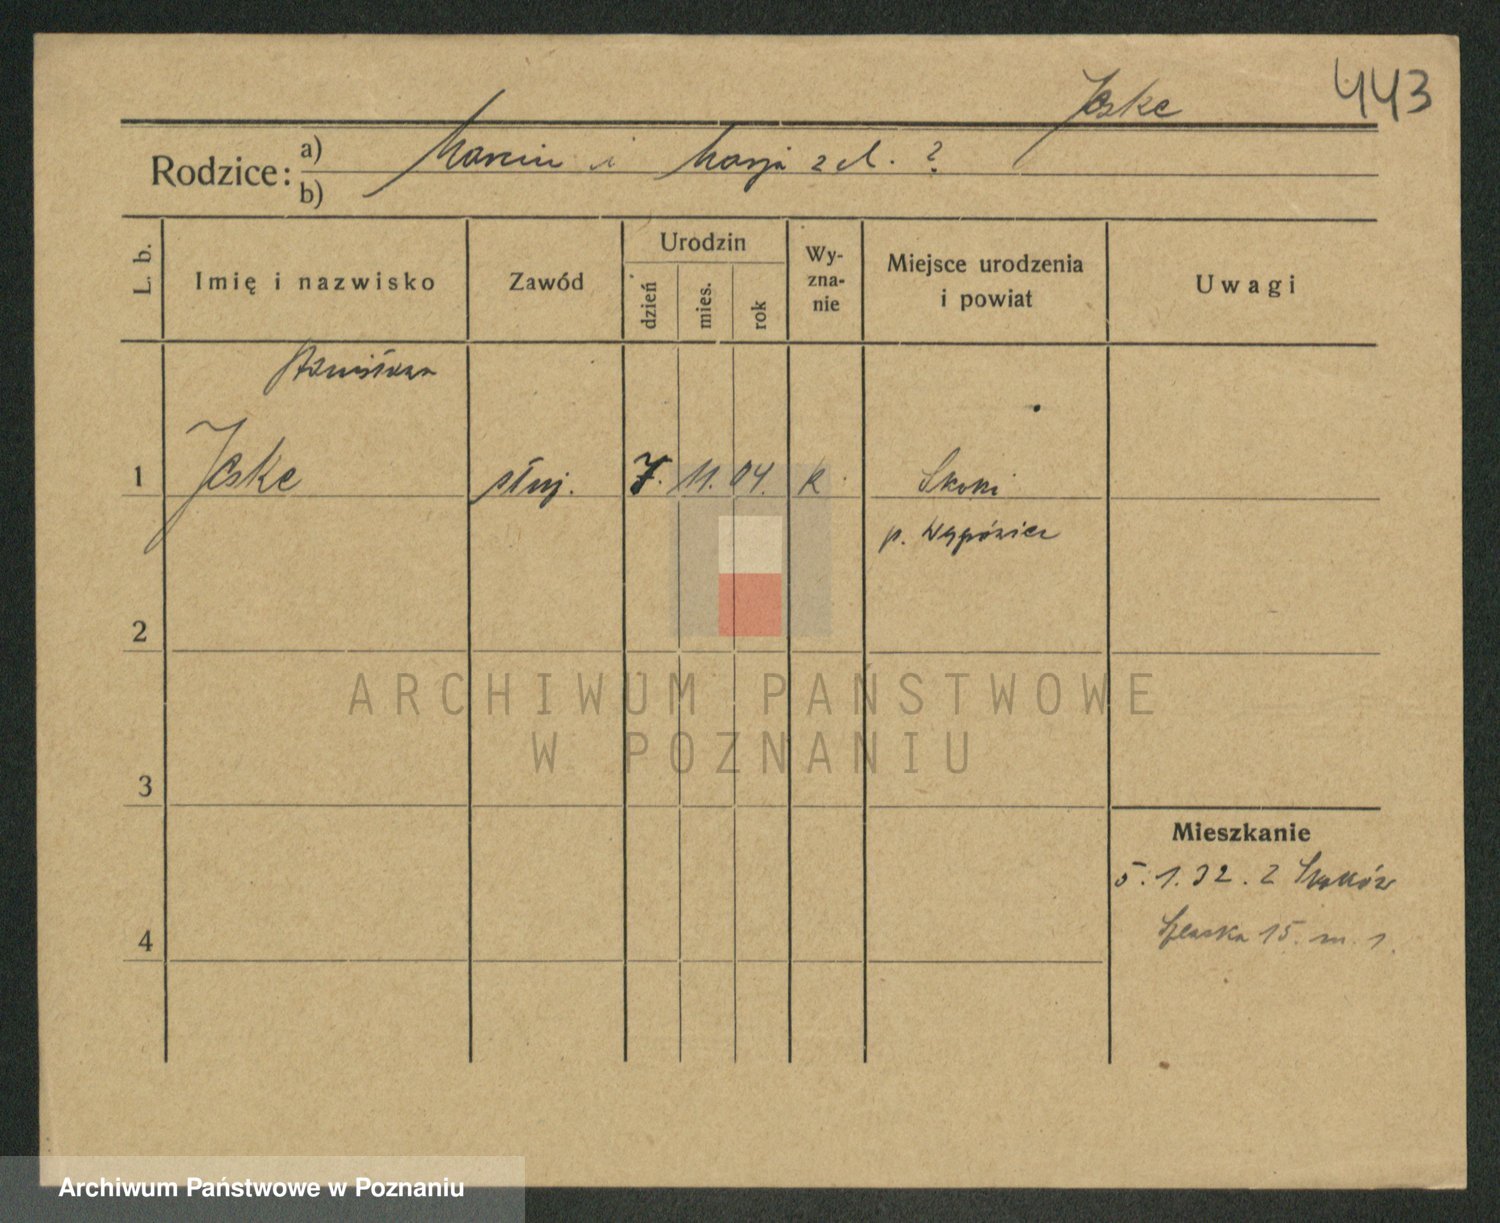 443
Jeske
Rodzice: a) Marcin i Marja z d. ?
b)
L. b.
Imię i nazwisko
Zawód
Urodzin
dzień
mies.
rok
Wy-
zna-
nie
Miejsce urodzenia
i powiat
Uwagi
Stanisława
1 Jeske służ. 7. 11. 04. k. Skoki
p. Wągrówiec
2
3
4
Mieszkanie
5.1.32. z Skoków
15. m. 1.
ARCHIWUM PAŃSTWOWE
W POZNANIU
Archiwum Państwowe w Poznaniu